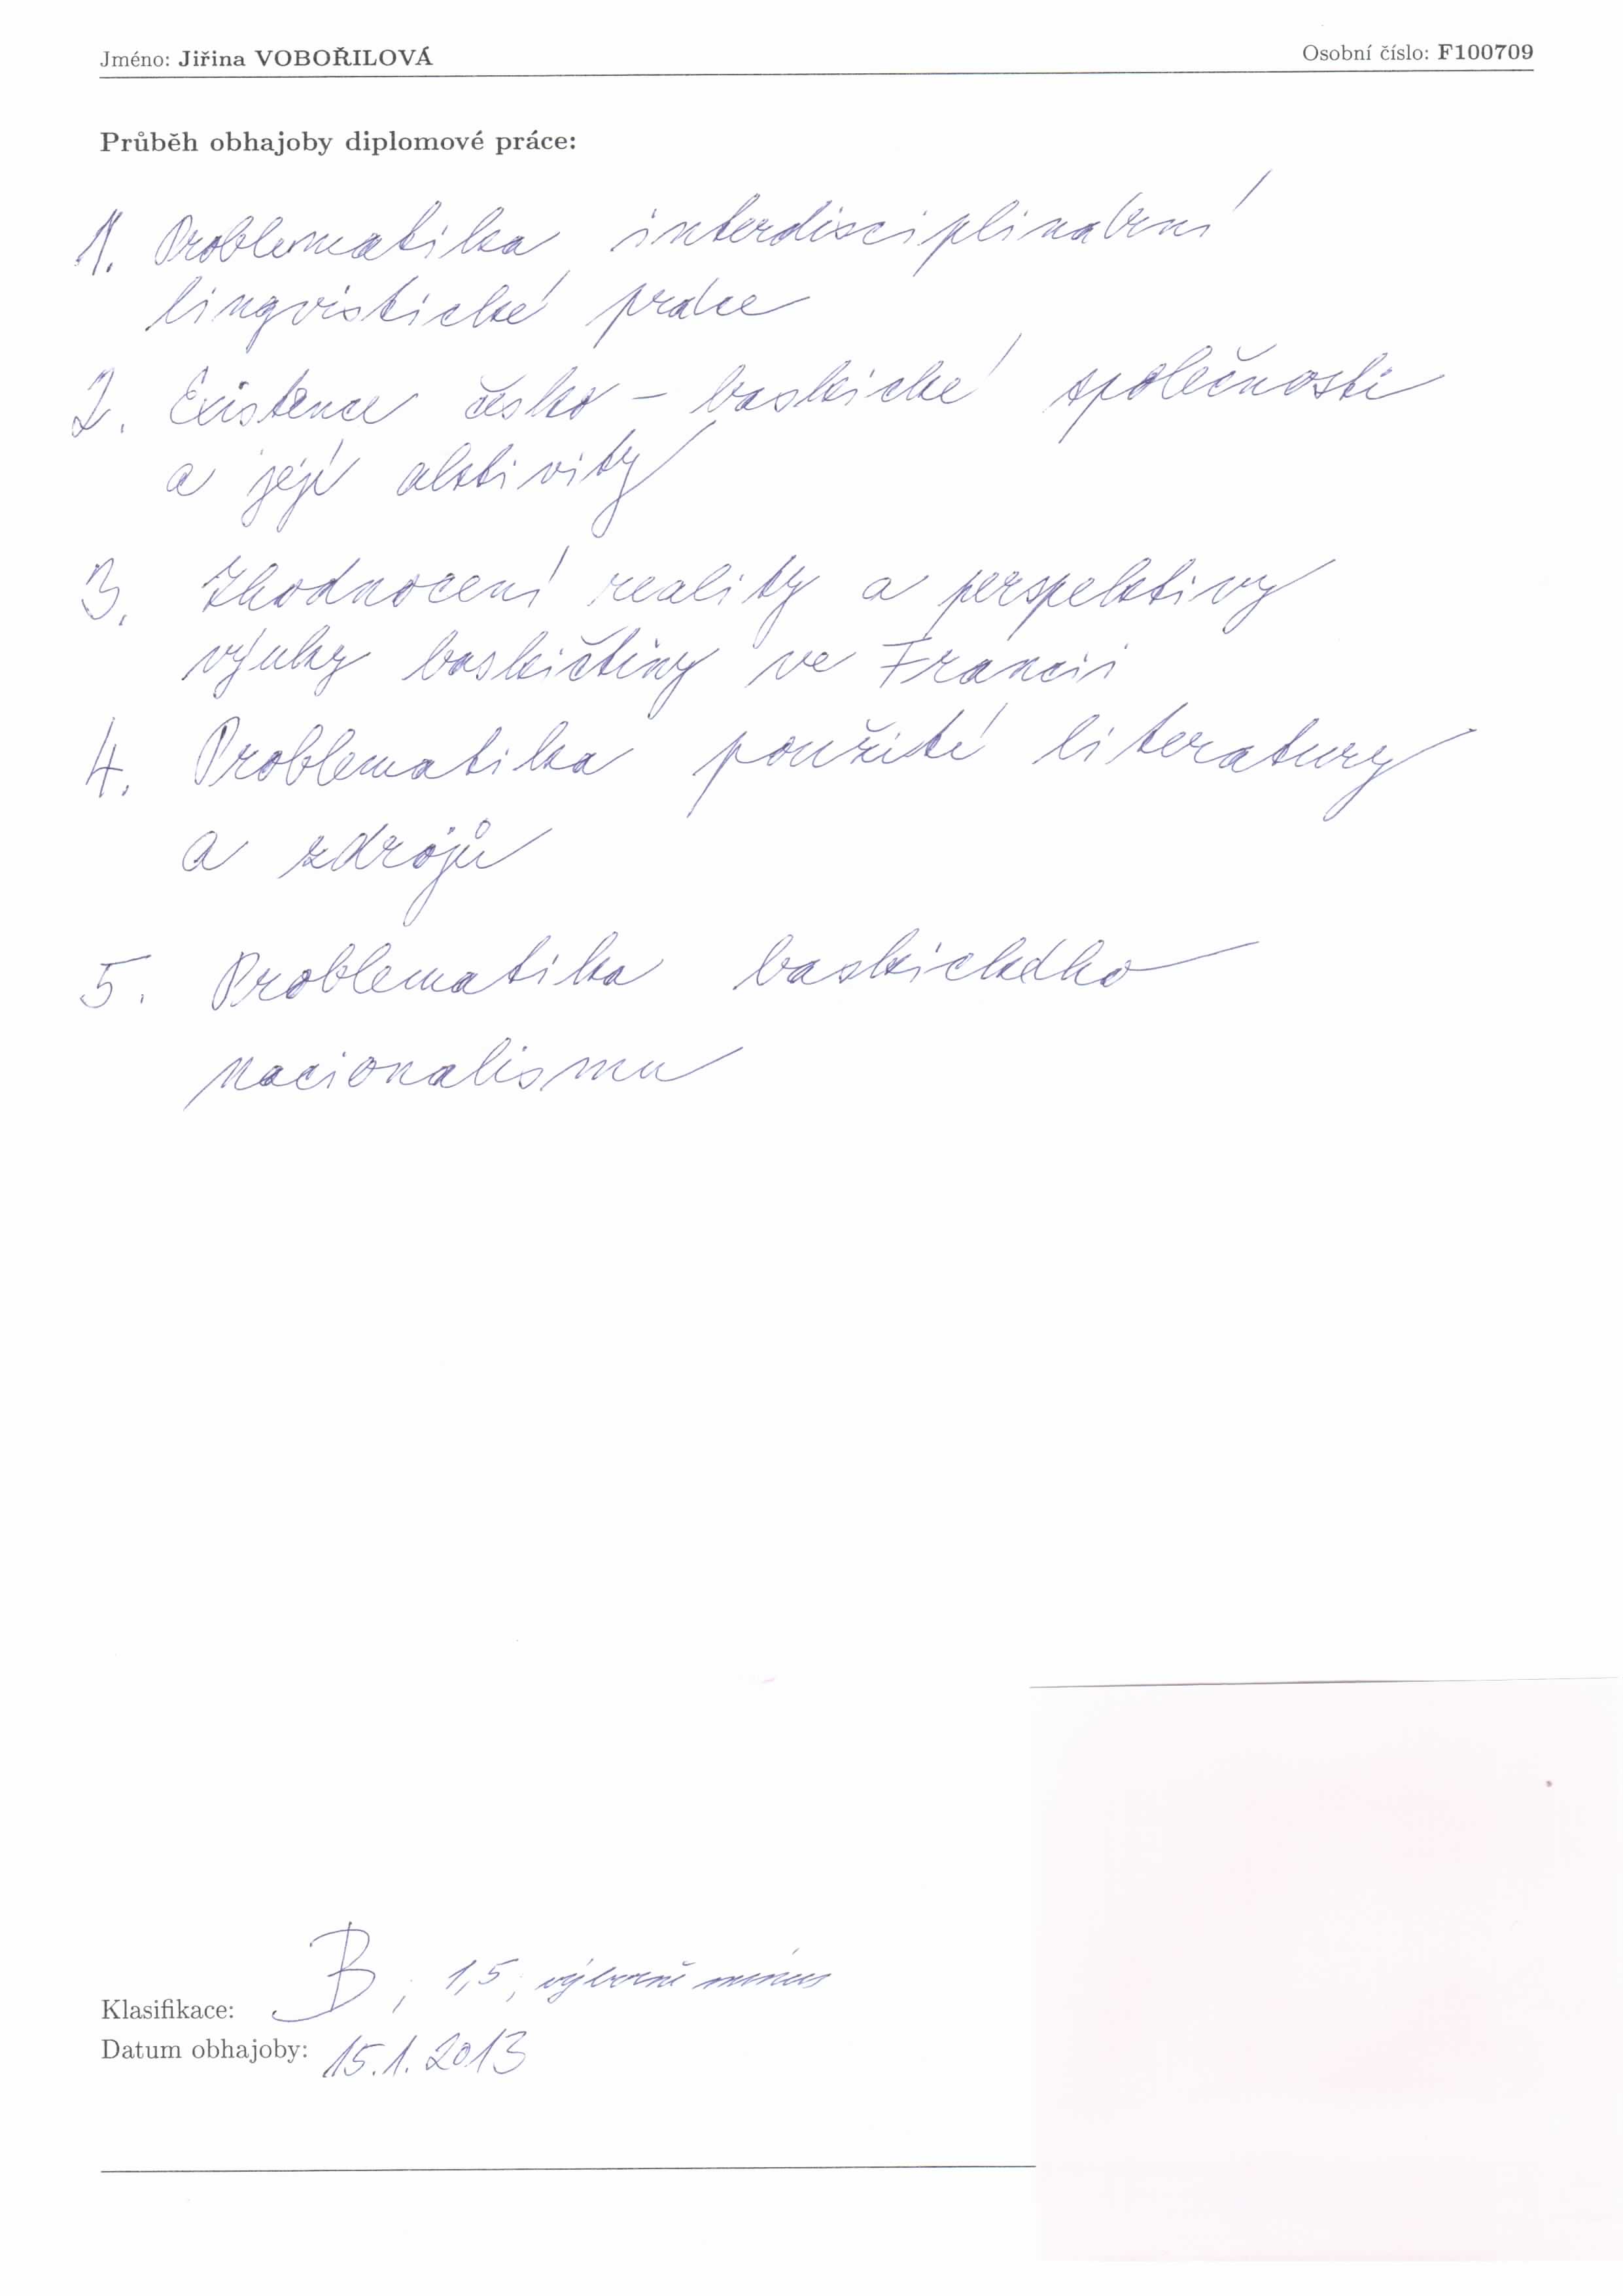 Jméno: Jiřina VOBOŘILOVÁ Osobní číslo: F100709
Průběh obhajoby diplomové práce:
1. Problematika interdisciplinární
lingvistické práce
2. Existence česko - baskické společnosti
a její aktivity
3. Zhodnocení reality a perspektivy
výuky baskičtiny ve Francii
4. Problematika použité literatury
a zdrojů
5. Problematika baskického
nacionalismu
Klasifikace: B, 1,5, výborně minus
Datum obhajoby: 15.1.2013